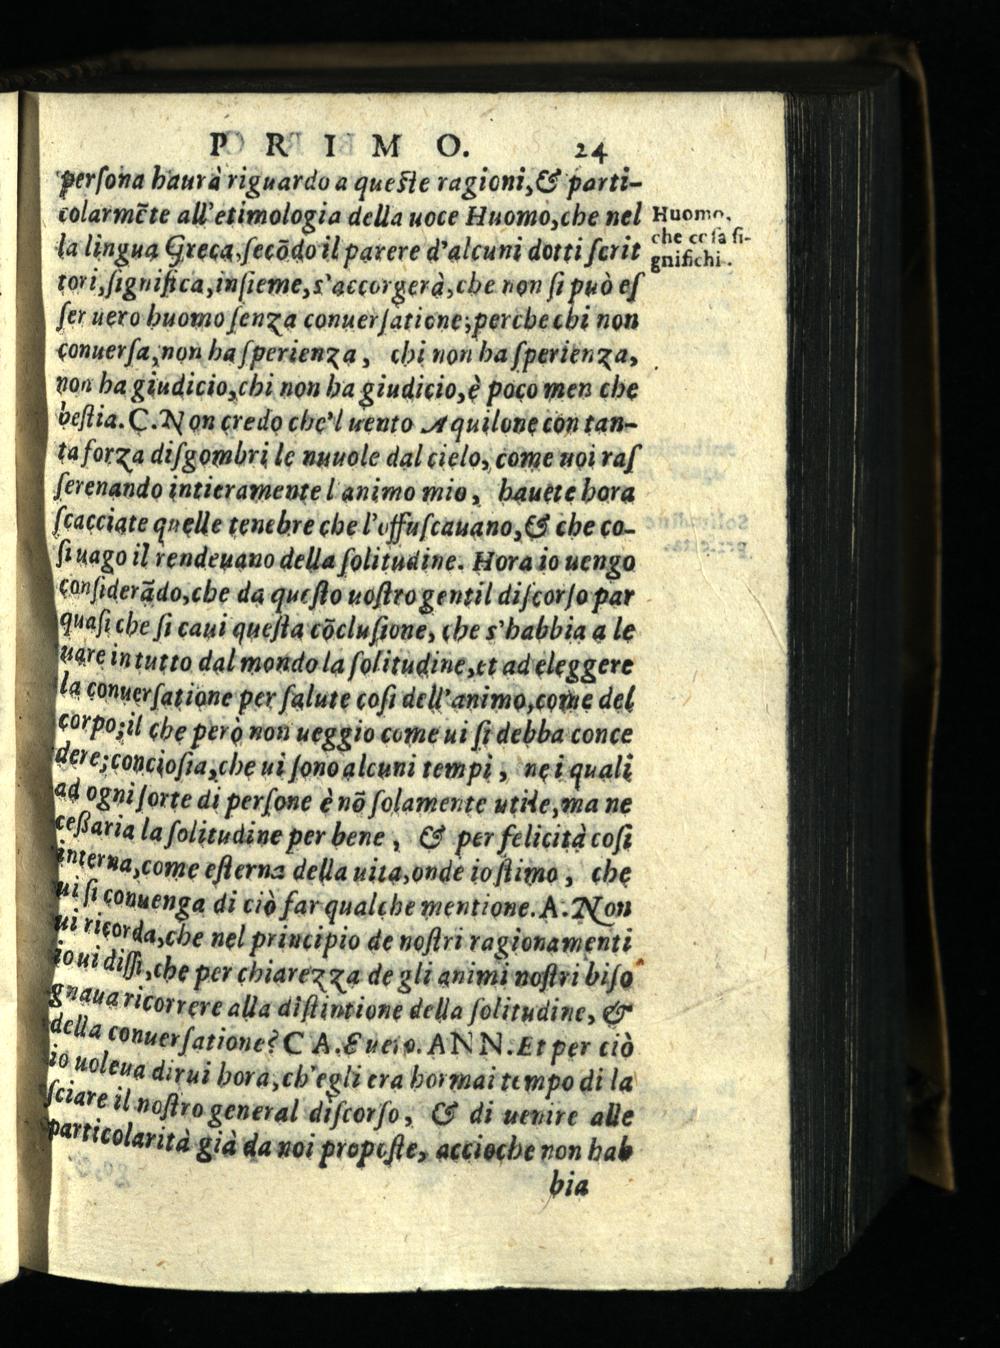 PRIMO. 24
perſona haurà riguardo a queſte ragioni, & parti-
colarmẽte all'etimologia della uoce Huomo, che nel
la lingua Greca, ſecõdo il parere d'alcuni dotti ſcrit
tori, ſignifica, inſieme, s'accorgerà, che non ſi può eſ
ſer uero huomo ſenza conuerſatione; perche chi non
conuerſa, non ha ſperienza, chi non ha ſperienza,
non ha giudicio, chi non ha giudicio, è poco men che
beſtia. C. Non credo che'l uento Aquilone con tan-
ta forza diſgombri le nuuole dal cielo, come uoi raſ
ſerenando intieramente l'animo mio, hauete hora
ſcacciate quelle tenebre che l'offuſcauano, & che co-
ſi uago il rendeuano della ſolitudine. Hora io uengo
conſiderãdo, che da queſto uoſtro gentil diſcorſo par
quaſi che ſi caui queſta cõcluſione, che s'habbia a le
uare in tutto dal mondo la ſolitudine, et ad eleggere
la conuerſatione per ſalute coſi dell'animo, come del
corpo; il che però non ueggio come ui ſi debba conce
dere; concioſia, che ui ſono alcuni tempi, ne i quali
ad ogni ſorte di perſone è nõ ſolamente utile, ma ne
ceßaria la ſolitudine per bene, & per felicità coſi
interna, come eſterna della uita, onde io ſtimo, che
ui ſi conuenga di ciò far qualche mentione. A. Non
ui ricorda, che nel principio de noſtri ragionamenti
io ui diſſi, che per chiarezza de gli animi noſtri biſo
gnaua ricorrere alla diſtintione della ſolitudine, &
della conuerſatione? C A. È uero. ANN. Et per ciò
io uoleua dirui hora, ch'egli era hormai tempo di la
ſciare il noſtro general diſcorſo, & di uenire alle
particolarità già da noi propoſte, accioche non hab
bia
Huomo,
che coſa ſi-
gnifichi.